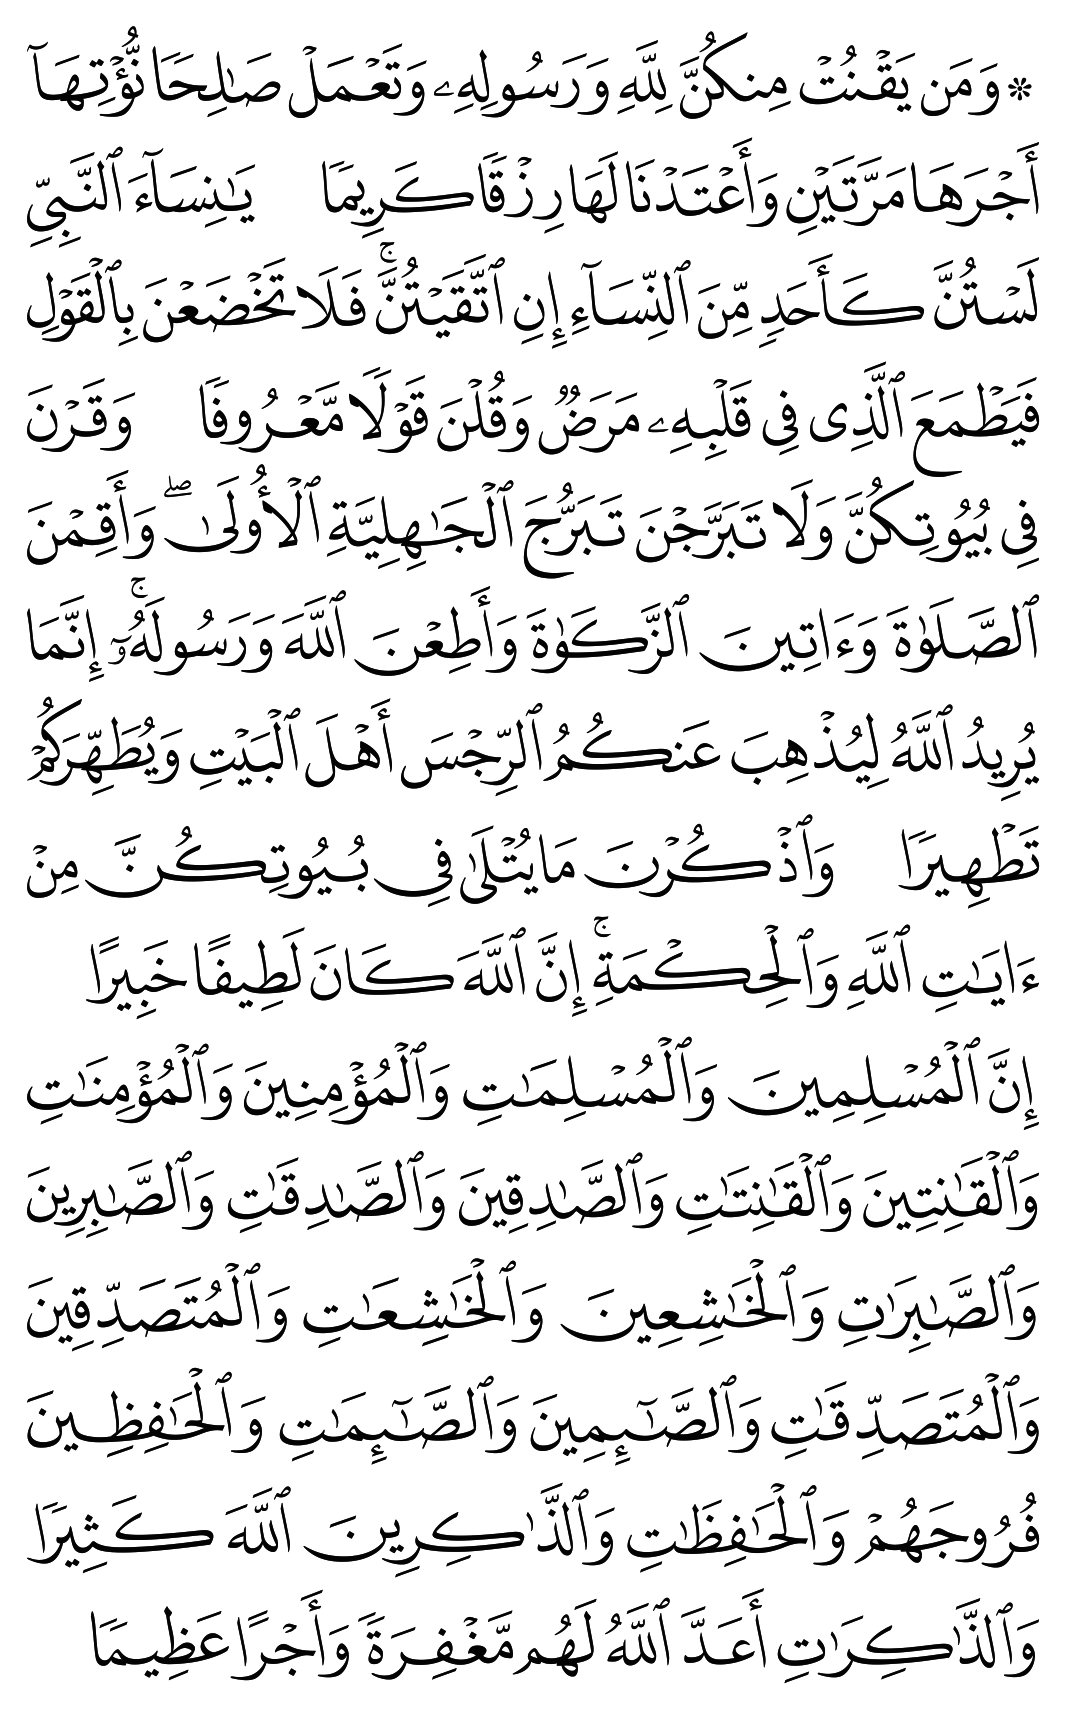 ۞ وَمَن يَقۡنُتۡ مِنكُنَّ لِلَّهِ وَرَسُولِهِۦ وَتَعۡمَلۡ صَٰلِحٗا نُّؤۡتِهَآ
أَجۡرَهَا مَرَّتَيۡنِ وَأَعۡتَدۡنَا لَهَا رِزۡقٗا كَرِيمٗا يَٰنِسَآءَ ٱلنَّبِيِّ
لَسۡتُنَّ كَأَحَدٖ مِّنَ ٱلنِّسَآءِ إِنِ ٱتَّقَيۡتُنَّۚ فَلَا تَخۡضَعۡنَ بِٱلۡقَوۡلِ
فَيَطۡمَعَ ٱلَّذِي فِي قَلۡبِهِۦ مَرَضٞ وَقُلۡنَ قَوۡلٗا مَّعۡرُوفٗا وَقَرۡنَ
فِي بُيُوتِكُنَّ وَلَا تَبَرَّجۡنَ تَبَرُّجَ ٱلۡجَٰهِلِيَّةِ ٱلۡأُولَىٰۖ وَأَقِمۡنَ
ٱلصَّلَوٰةَ وَءَاتِينَ ٱلزَّكَوٰةَ وَأَطِعۡنَ ٱللَّهَ وَرَسُولَهُۥٓۚ إِنَّمَا
يُرِيدُ ٱللَّهُ لِيُذۡهِبَ عَنكُمُ ٱلرِّجۡسَ أَهۡلَ ٱلۡبَيۡتِ وَيُطَهِّرَكُمۡ
تَطۡهِيرٗا وَٱذۡكُرۡنَ مَا يُتۡلَىٰ فِي بُيُوتِكُنَّ مِنۡ
ءَايَٰتِ ٱللَّهِ وَٱلۡحِكۡمَةِۚ إِنَّ ٱللَّهَ كَانَ لَطِيفًا خَبِيرًا
إِنَّ ٱلۡمُسۡلِمِينَ وَٱلۡمُسۡلِمَٰتِ وَٱلۡمُؤۡمِنِينَ وَٱلۡمُؤۡمِنَٰتِ
وَٱلۡقَٰنِتِينَ وَٱلۡقَٰنِتَٰتِ وَٱلصَّٰدِقِينَ وَٱلصَّٰدِقَٰتِ وَٱلصَّٰبِرِينَ
وَٱلصَّٰبِرَٰتِ وَٱلۡخَٰشِعِينَ وَٱلۡخَٰشِعَٰتِ وَٱلۡمُتَصَدِّقِينَ
وَٱلۡمُتَصَدِّقَٰتِ وَٱلصَّٰٓئِمِينَ وَٱلصَّٰٓئِمَٰتِ وَٱلۡحَٰفِظِينَ
فُرُوجَهُمۡ وَٱلۡحَٰفِظَٰتِ وَٱلذَّٰكِرِينَ ٱللَّهَ كَثِيرٗا
وَٱلذَّٰكِرَٰتِ أَعَدَّ ٱللَّهُ لَهُم مَّغۡفِرَةٗ وَأَجۡرًا عَظِيمٗا